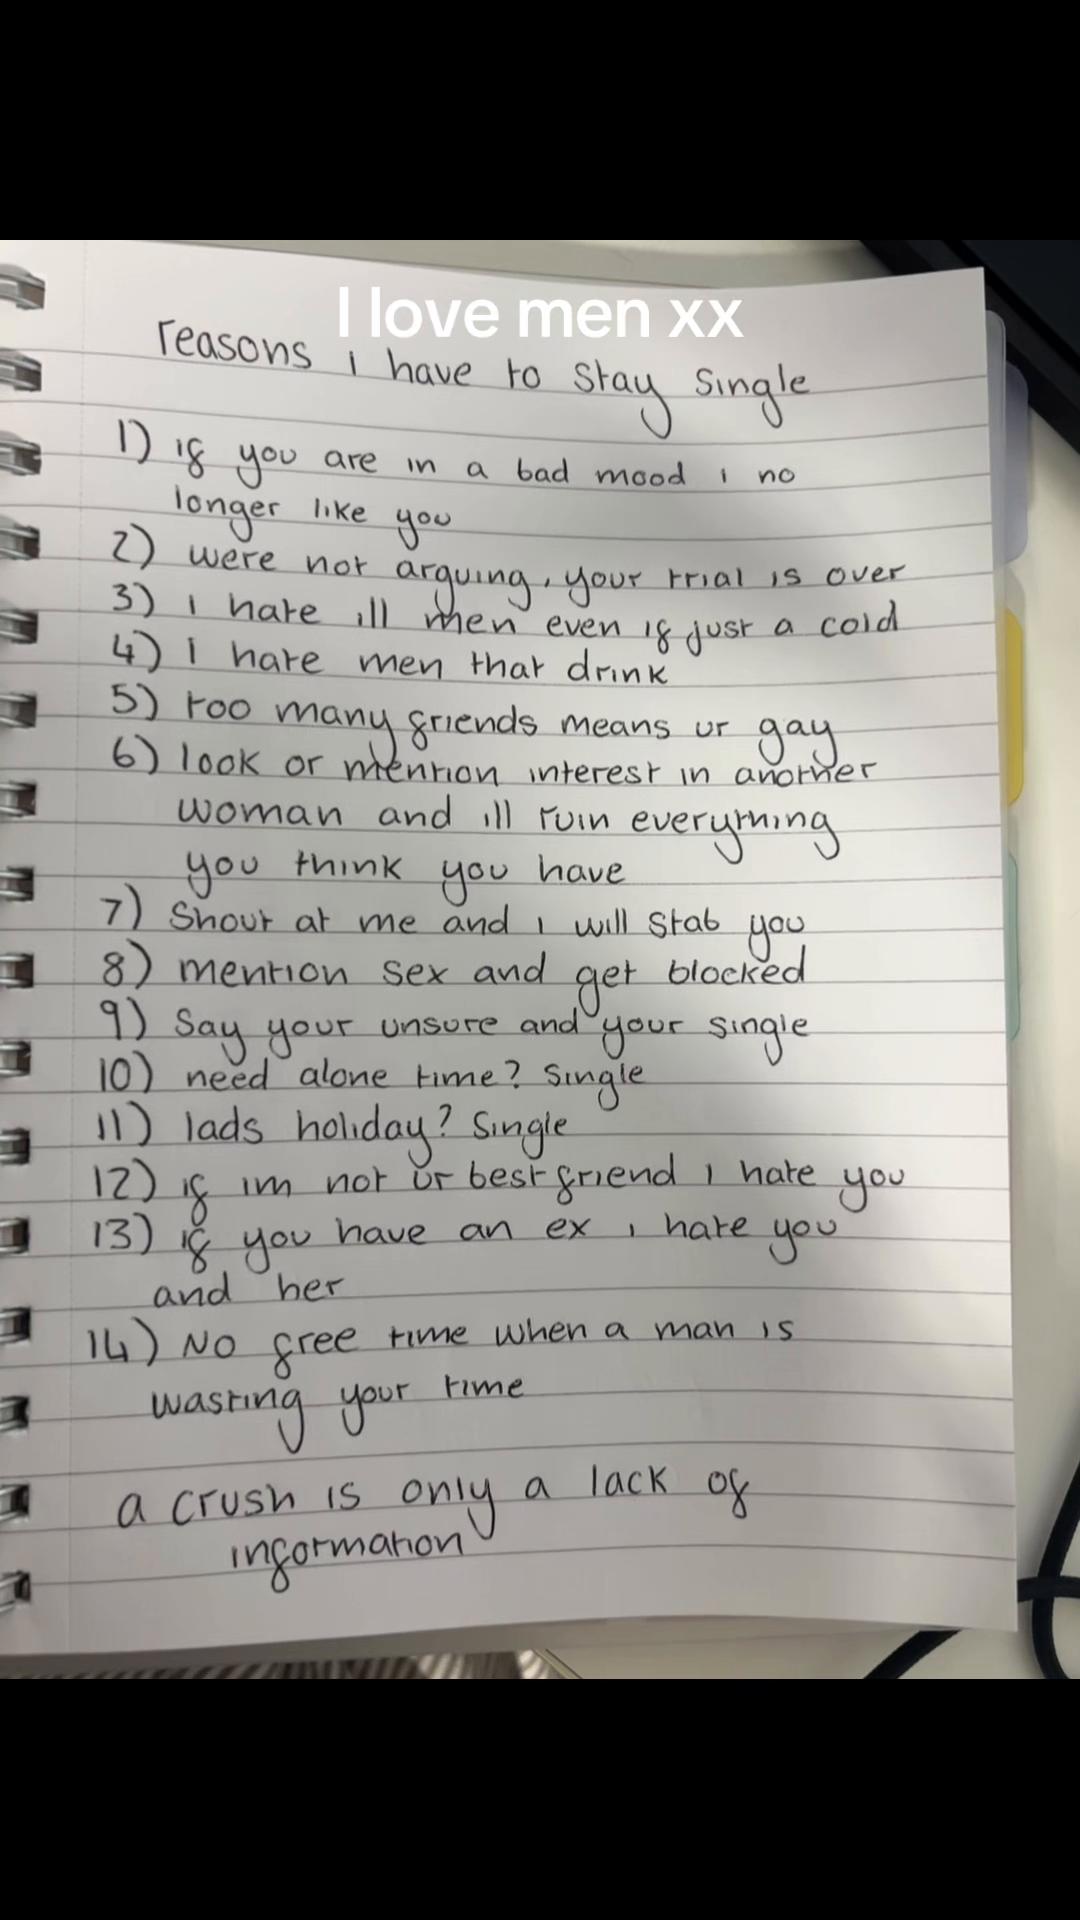 I love men xx
reasons i have to stay single
1) if you are in a bad mood i no
longer like you
2) were not arguing, your trial is over
3) i hate ill men even if just a cold
4) I hate men that drink
5) too many friends means ur gay
6) look or mention interest in another
woman and ill ruin everything
you think you have
7) Shout at me and i will stab you
8) mention sex and get blocked
9) Say your unsure and your single
10) need alone time? Single
11) lads holiday? Single
12) if im not ur best friend i hate you
13) if you have an ex i hate you
and her
14) No free time when a man is
wasting your time
a crush is only a lack of
information